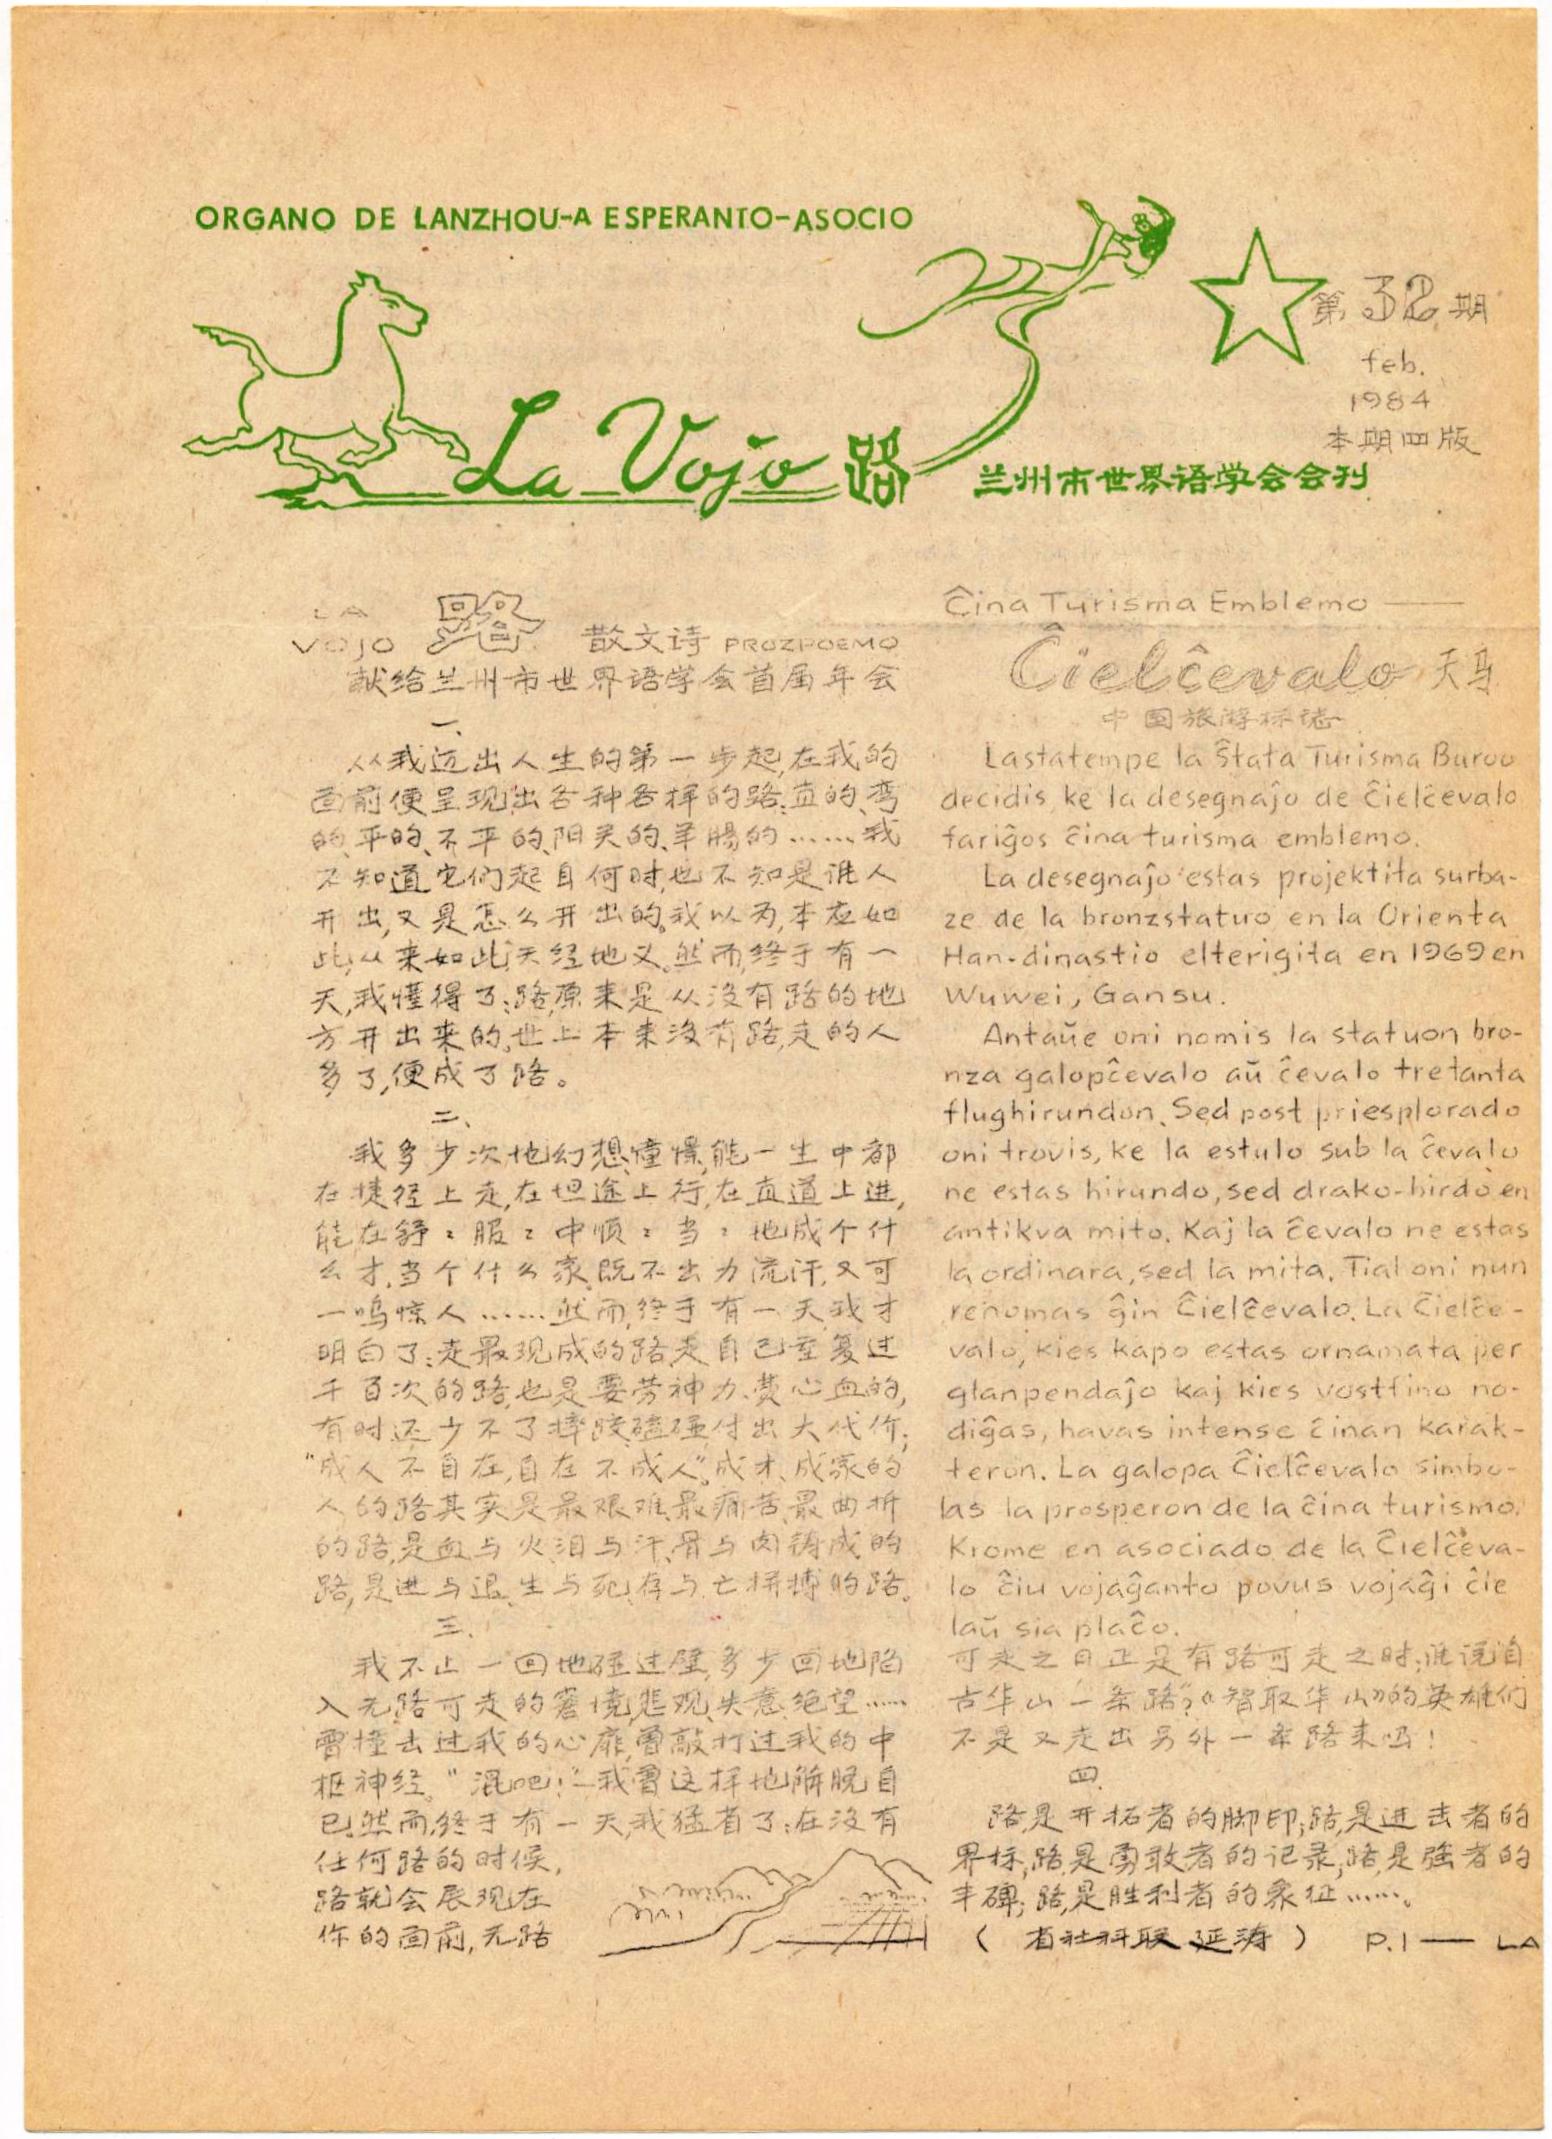 ORGANO DE LANZHOU-A ESPERANTO-ASOCIO
第32期
feb.
1984
本期四版
La Vojo 路
兰州市世界语学会会刊
LA
VOJO 路 散文诗 PROZPOEMO
献给兰州市世界语学会首届年会
一、
从我迈出人生的第一步起,在我的
面前便呈现出各种各样的路:直的、弯
的、平的、不平的、阳关的、羊肠的……我
不知道它们起自何时,也不知是谁人
开出,又是怎么开出的。我以为,本应如
此,从来如此,天经地义。然而,终于有一
天,我懂得了:路,原来是从没有路的地
方开出来的。世上本来没有路,走的人
多了,便成了路。
二、
我多少次地幻想、憧憬,能一生中都
在捷径上走,在坦途上行,在直道上进,
能在舒:服:中顺:当:地成个什
么才,当个什么家,既不出力流汗,又可
一鸣惊人……然而,终于有一天,我才
明白了:走最现成的路,走自己重复过
千百次的路,也是要劳神力、费心血的,
有时还少不了摔跤、磕碰,付出大代价;
“成人不自在,自在不成人”。成才、成家的
人的路其实是最艰难、最痛苦、最曲折
的路,是血与火、泪与汗、骨与肉铸成的
路,是进与退、生与死、存与亡拼搏的路。
三、
我不止一回地碰过壁,多少回地陷
入无路可走的窘境,悲观、失意、绝望……
曾撞击过我的心扉,曾敲打过我的中
枢神经。“混吧!”—我曾这样地解脱自
己。然而,终于有一天,我猛省了:在没有
任何路的时候,
路就会展现在
你的面前,无路
Ĉina Turisma Emblemo ——
Ĉielĉevalo 天马
中国旅游标志
Lastatempe la Ŝtata Turisma Buroo
decidis, ke la desegnaĵo de ĉielĉevalo
fariĝos ĉina turisma emblemo.
La desegnaĵo estas projektita surba-
ze de la bronzstatuo en la Orienta
Han-dinastio elterigita en 1969 en
Wuwei, Gansu.
Antaŭe oni nomis la statuon bro-
nza galopĉevalo aŭ ĉevalo tretanta
flughirundon. Sed post priesplorado
oni trovis, ke la estulo sub la ĉevalo
ne estas hirundo, sed drako-birdo en
antikva mito. Kaj la ĉevalo ne estas
la ordinara, sed la mita. Tial oni nun
renomas ĝin Ĉielĉevalo. La Ĉielĉe-
valo, kies kapo estas ornamata per
glanpendaĵo kaj kies vostfino no-
diĝas, havas intense ĉinan karak-
teron. La galopa Ĉielĉevalo simbo-
las la prosperon de la ĉina turismo.
Krome en asociado de la Ĉielĉeva-
lo ĉiu vojaĝanto povus vojaĝi ĉie
laŭ sia plaĉo.
可走之日正是有路可走之时;谁说自
古华山一条路”?《智取华山》的英雄们
不是又走出另外一条路来吗!
四、
路,是开拓者的脚印;路,是进击者的
界标;路,是勇敢者的记录;路,是强者的
丰碑;路,是胜利者的象征……。
(省社科联 延涛) P.1 — LA